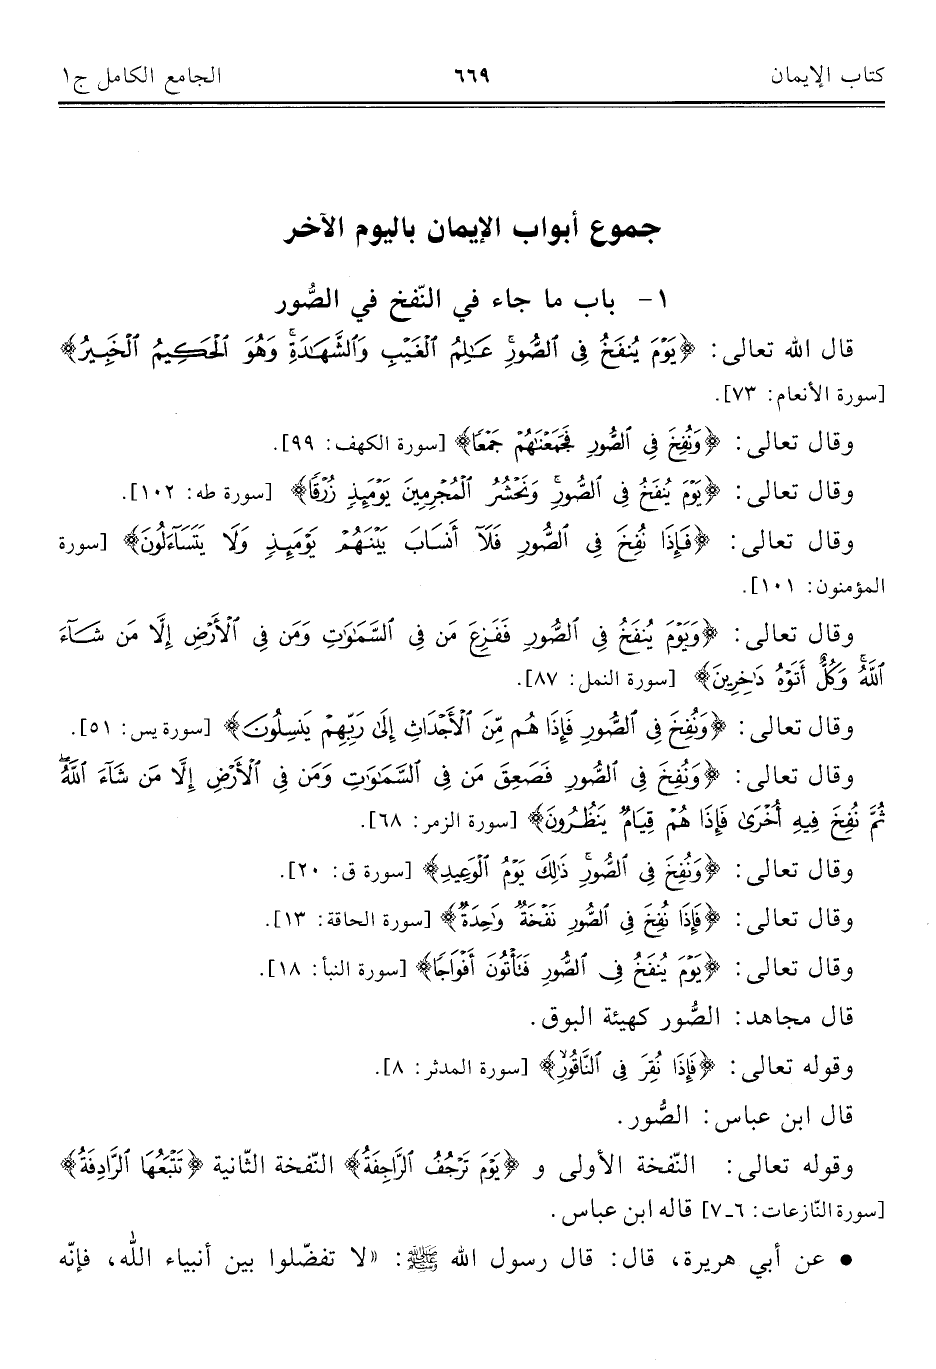 كتاب الإيمان ٦٦٩ الجامع الكامل ج١
جموع أبواب الإيمان باليوم الآخر
١- باب ما جاء في النّفخ في الصُّور
قال الله تعالى: ﴿يَوۡمَ يُنفَخُ فِي ٱلصُّورِۚ عَٰلِمُ ٱلۡغَيۡبِ وَٱلشَّهَٰدَةِۚ وَهُوَ ٱلۡحَكِيمُ ٱلۡخَبِيرُ﴾
[سورة الأنعام: ٧٣].
وقال تعالى: ﴿وَنُفِخَ فِي ٱلصُّورِ فَجَمَعۡنَٰهُمۡ جَمۡعٗا﴾ [سورة الكهف: ٩٩].
وقال تعالى: ﴿يَوۡمَ يُنفَخُ فِي ٱلصُّورِۚ وَنَحۡشُرُ ٱلۡمُجۡرِمِينَ يَوۡمَئِذٖ زُرۡقٗا﴾ [سورة طه: ١٠٢].
وقال تعالى: ﴿فَإِذَا نُفِخَ فِي ٱلصُّورِ فَلَآ أَنسَابَ بَيۡنَهُمۡ يَوۡمَئِذٖ وَلَا يَتَسَآءَلُونَ﴾ [سورة
المؤمنون: ١٠١].
وقال تعالى: ﴿وَيَوۡمَ يُنفَخُ فِي ٱلصُّورِ فَفَزِعَ مَن فِي ٱلسَّمَٰوَٰتِ وَمَن فِي ٱلۡأَرۡضِ إِلَّا مَن شَآءَ
ٱللَّهُۚ وَكُلٌّ أَتَوۡهُ دَٰخِرِينَ﴾ [سورة النمل: ٨٧].
وقال تعالى: ﴿وَنُفِخَ فِي ٱلصُّورِ فَإِذَا هُم مِّنَ ٱلۡأَجۡدَاثِ إِلَىٰ رَبِّهِمۡ يَنسِلُونَ﴾ [سورة يس: ٥١].
وقال تعالى: ﴿وَنُفِخَ فِي ٱلصُّورِ فَصَعِقَ مَن فِي ٱلسَّمَٰوَٰتِ وَمَن فِي ٱلۡأَرۡضِ إِلَّا مَن شَآءَ ٱللَّهُۖ
ثُمَّ نُفِخَ فِيهِ أُخۡرَىٰ فَإِذَا هُمۡ قِيَامٞ يَنظُرُونَ﴾ [سورة الزمر: ٦٨].
وقال تعالى: ﴿وَنُفِخَ فِي ٱلصُّورِۚ ذَٰلِكَ يَوۡمُ ٱلۡوَعِيدِ﴾ [سورة ق: ٢٠].
وقال تعالى: ﴿فَإِذَا نُفِخَ فِي ٱلصُّورِ نَفۡخَةٞ وَٰحِدَةٞ﴾ [سورة الحاقة: ١٣].
وقال تعالى: ﴿يَوۡمَ يُنفَخُ فِي ٱلصُّورِ فَتَأۡتُونَ أَفۡوَاجٗا﴾ [سورة النبأ: ١٨].
قال مجاهد: الصُّور كهيئة البوق.
وقوله تعالى: ﴿فَإِذَا نُقِرَ فِي ٱلنَّاقُورِۙ﴾ [سورة المدثر: ٨].
قال ابن عباس: الصُّور.
وقوله تعالى: النّفخة الأولى و ﴿يَوۡمَ تَرۡجُفُ ٱلرَّاجِفَةُ﴾ النّفخة الثّانية ﴿تَتۡبَعُهَا ٱلرَّادِفَةُ﴾
[سورة النّازعات: ٦ـ٧] قاله ابن عباس.
● عن أبي هريرة، قال: قال رسول الله ﷺ: «لا تفضّلوا بين أنبياء الله، فإنّه